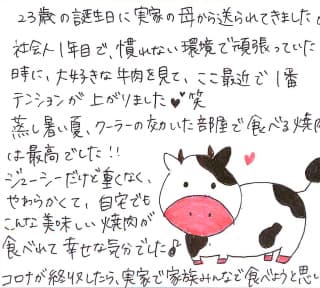 23歳の誕生日に実家の母から送られてきました
社会人1年目で、慣れない環境で頑張っていた
時に、大好きな牛肉を見て、ここ最近で1番
テンションが上がりました♥♥笑
蒸し暑い夏、クーラーの効いた部屋で食べる焼肉
は最高でした!!
ジューシーだけど重くなく、
やわらかくて、自宅でも
こんな美味しい焼肉が
食べれて幸せな気分でした♪
コロナが終収したら、実家で家族みんなで食べようと思い